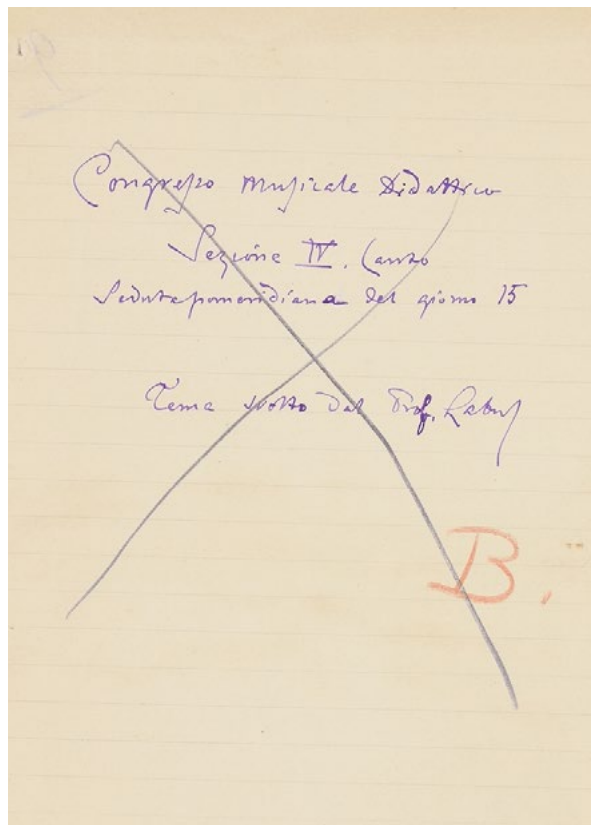 Congresso Musicale Didattico
Sezione IV. Canto
Seduta pomeridiana del giorno 15
Tema svolto dal Prof. Rabus
B.